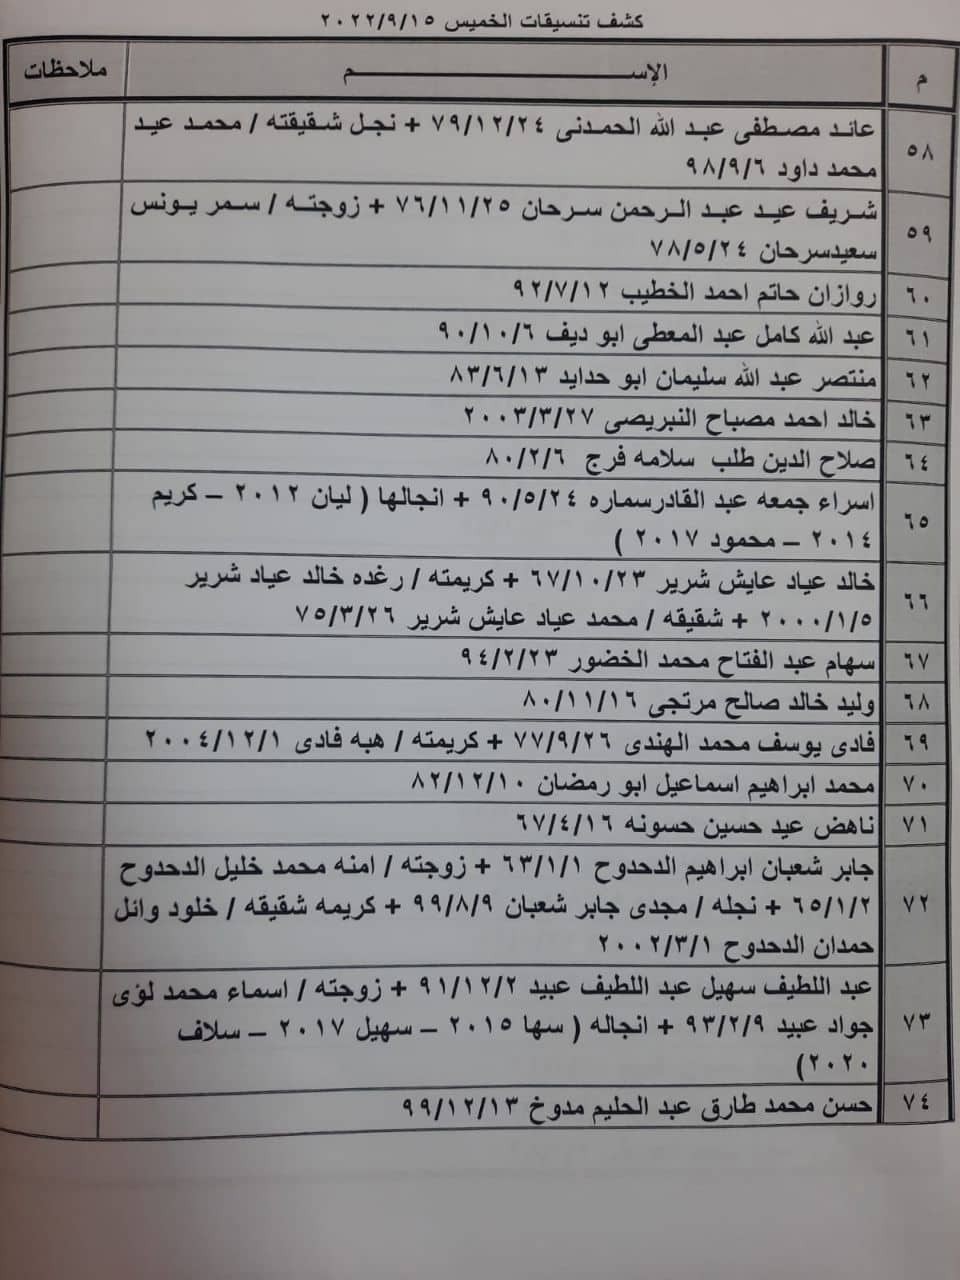 كشف تنسيقات الخميس ٢٠٢٢/٩/١٥
م الإســـــم ملاحظات
٥٨ عائد مصطفى عبد الله الحمدنى ٧٩/١٢/٢٤ + نجل شقيقته / محمد عيد
محمد داود ٩٨/٩/٦
٥٩ شريف عيد عبد الرحمن سرحان ٧٦/١١/٢٥ + زوجته / سمر يونس
سعيدسرحان ٧٨/٥/٢٤
٦٠ روازان حاتم احمد الخطيب ٩٢/٧/١٢
٦١ عبد الله كامل عبد المعطى ابو ديف ٩٠/١٠/٦
٦٢ منتصر عبد الله سليمان ابو حدايد ٨٣/٦/١٣
٦٣ خالد احمد مصباح النبريصى ٢٠٠٣/٣/٢٧
٦٤ صلاح الدين طلب سلامه فرج ٨٠/٢/٦
٦٥ اسراء جمعه عبد القادرسماره ٩٠/٥/٢٤ + انجالها ( ليان ٢٠١٢ – كريم
٢٠١٤ – محمود ٢٠١٧ )
٦٦ خالد عياد عايش شرير ٦٧/١٠/٢٣ + كريمته / رغده خالد عياد شرير
٢٠٠٠/١/٥ + شقيقه / محمد عياد عايش شرير ٧٥/٣/٢٦
٦٧ سهام عبد الفتاح محمد الخضور ٩٤/٢/٢٣
٦٨ وليد خالد صالح مرتجى ٨٠/١١/١٦
٦٩ فادى يوسف محمد الهندى ٧٧/٩/٢٦ + كريمته / هبه فادى ٢٠٠٤/١٢/١
٧٠ محمد ابراهيم اسماعيل ابو رمضان ٨٢/١٢/١٠
٧١ ناهض عيد حسين حسونه ٦٧/٤/١٦
٧٢ جابر شعبان ابراهيم الدحدوح ٦٣/١/١ + زوجته / امنه محمد خليل الدحدوح
٦٥/١/٢ + نجله / مجدى جابر شعبان ٩٩/٨/٩ + كريمه شقيقه / خلود وائل
حمدان الدحدوح ٢٠٠٢/٣/١
٧٣ عبد اللطيف سهيل عبد اللطيف عبيد ٩١/١٢/٢ + زوجته / اسماء محمد لؤى
جواد عبيد ٩٣/٢/٩ + انجاله ( سها ٢٠١٥ – سهيل ٢٠١٧ – سلاف
٢٠٢٠)
٧٤ حسن محمد طارق عبد الحليم مدوخ ٩٩/١٢/١٣